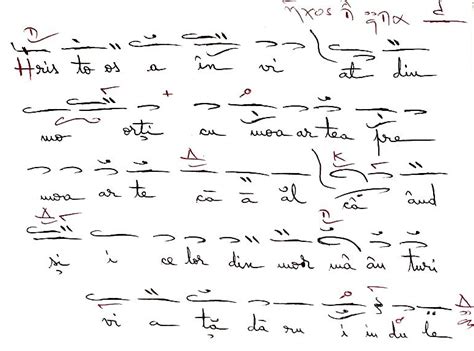 ἦχος
Hris to os a în vi at din
mo orți cu moa ar tea pre
moa ar te că ă ăl că ând
și i ce lor din mor mâ ân turi
vi a ță dă ru i in du le